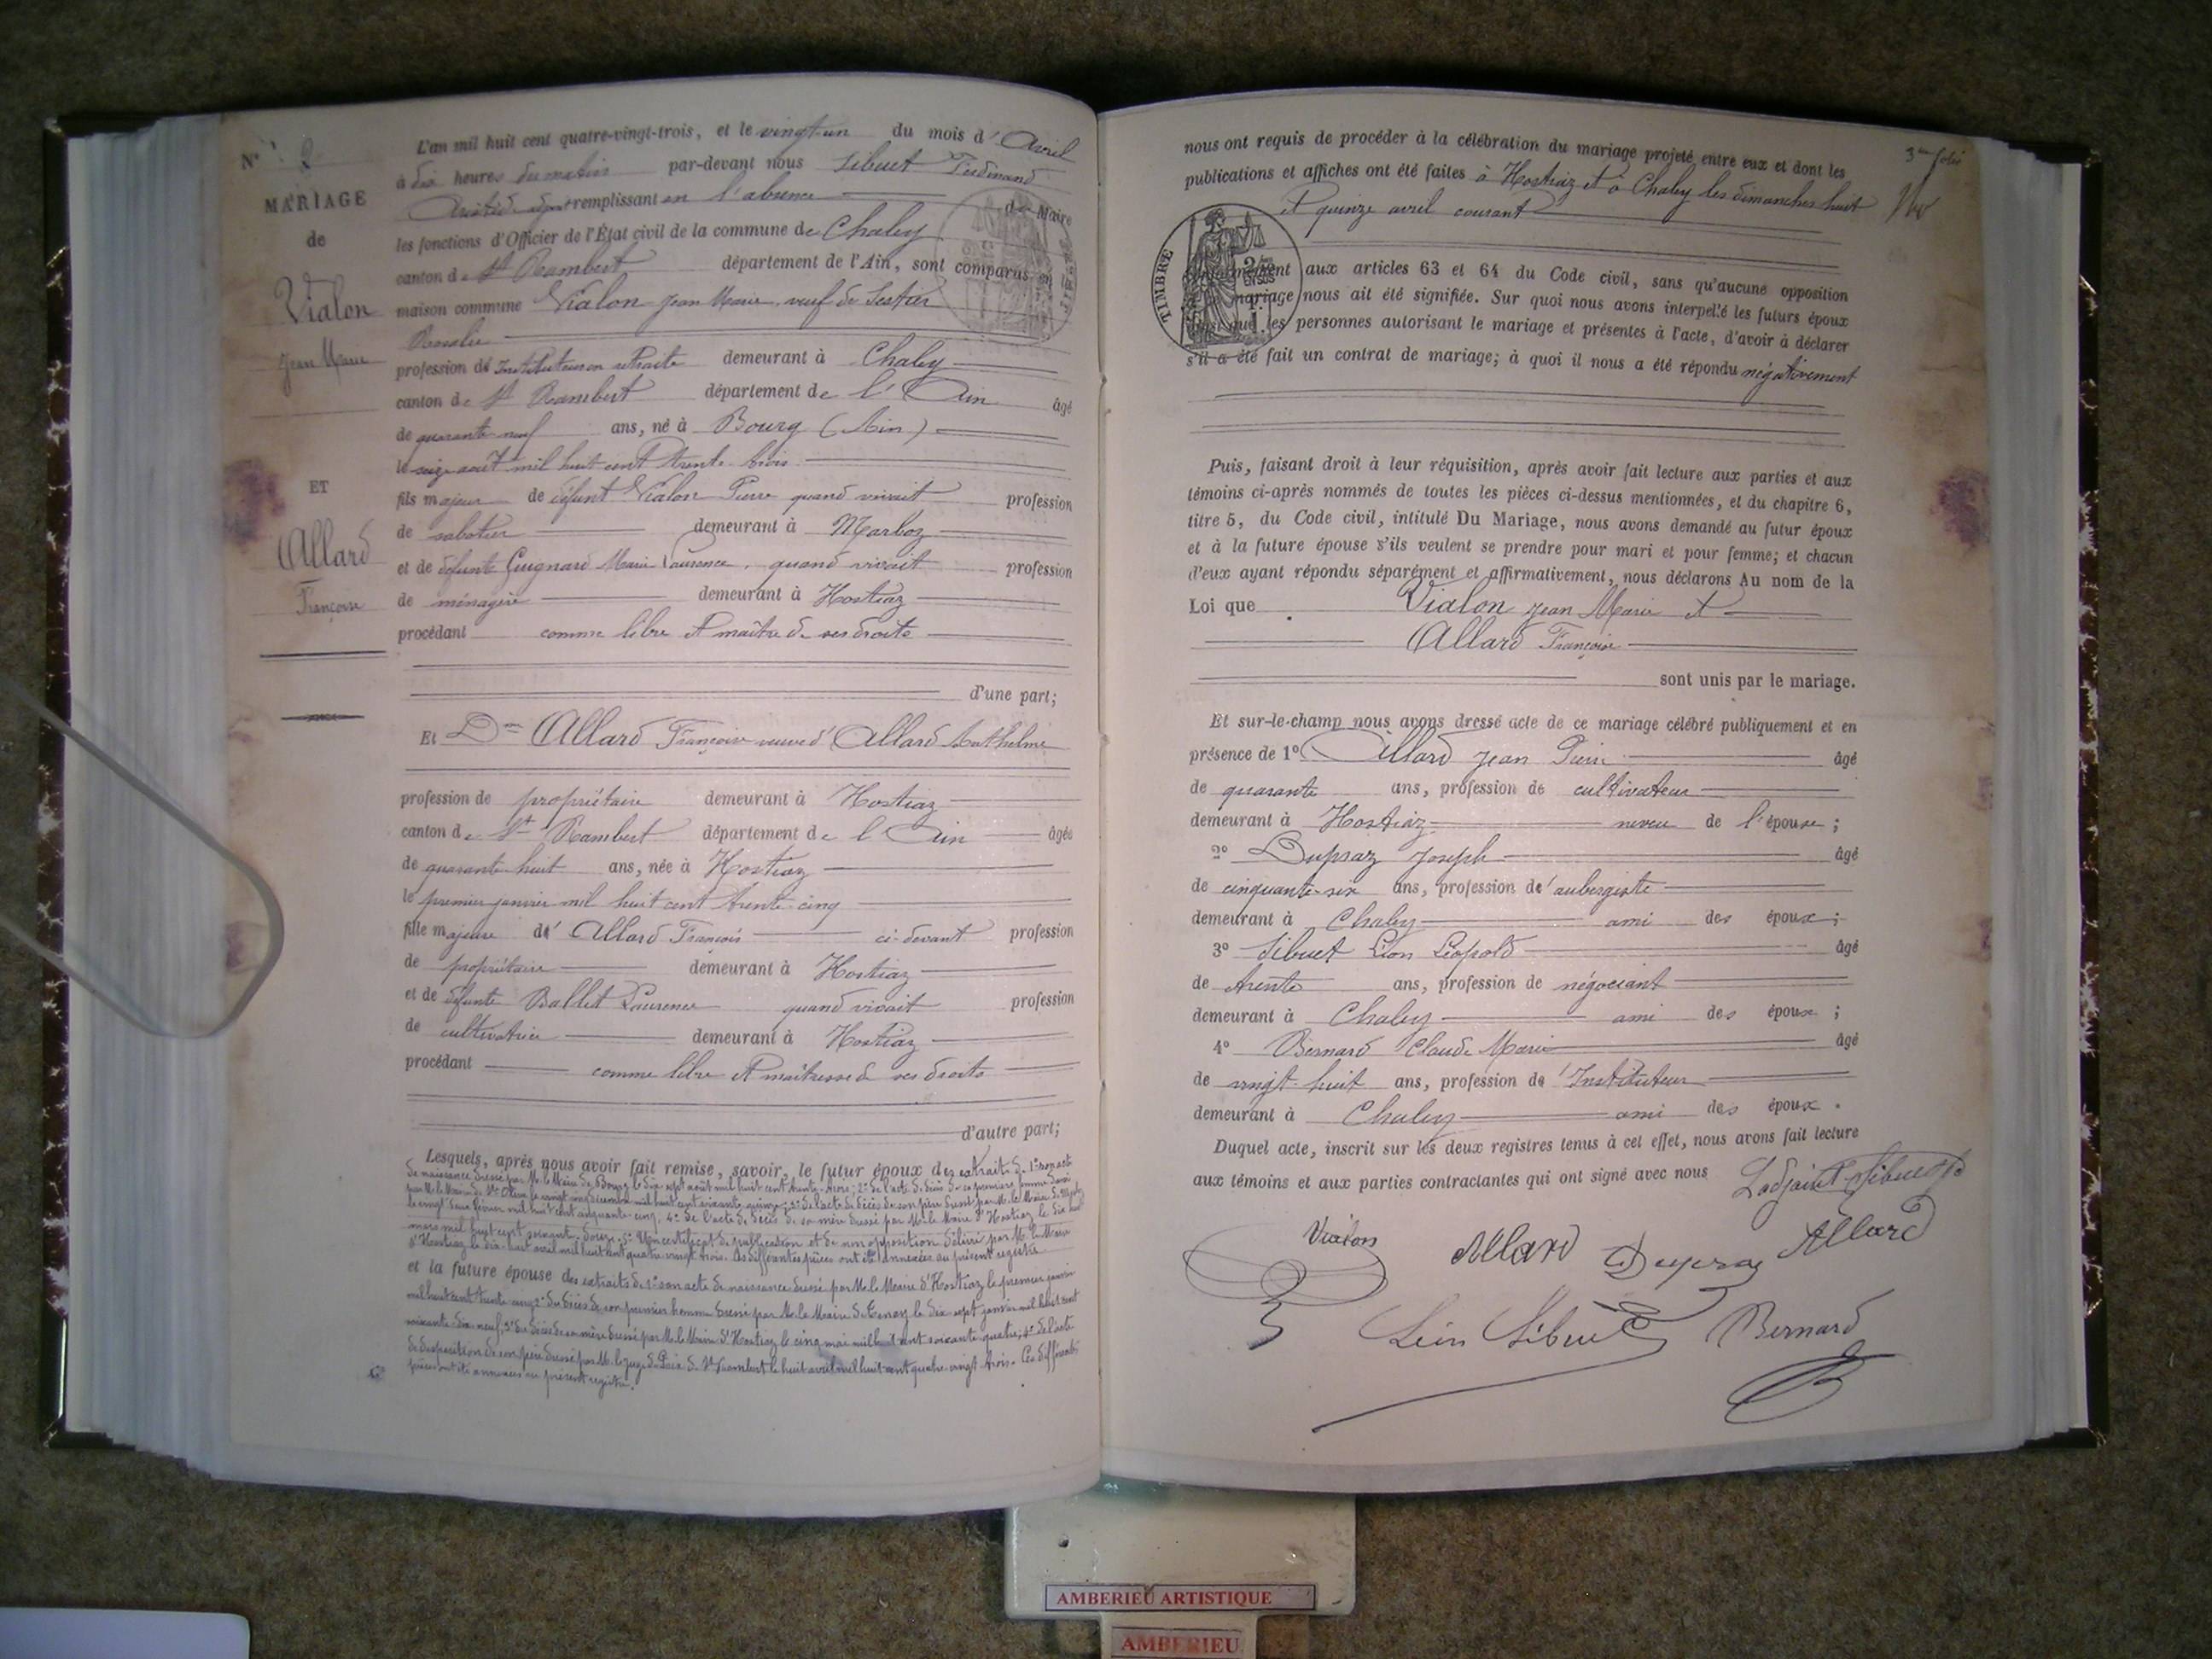 N° 2
MARIAGE
de
Vialon
Jean Marie
ET
Allard
Françoise
L'an mil huit cent quatre-vingt-trois, et le vingt-un du mois d'Avril
à dix heures du matin par-devant nous Sibuet Ferdinand
remplissant en l'absence de Maire
les fonctions d'Officier de l'État civil de la commune de Chaley
canton de St Rambert département de l'Ain, sont comparus en
maison commune Vialon Jean Marie veuf de
Rosalie
profession de Instituteur en retraite demeurant à Chaley
canton de St Rambert département de l'Ain âgé
de quarante-neuf ans, né à Bourg (Ain)
le seize août mil huit cent trente-trois
fils majeur de défunt Vialon Pierre quand vivait profession
de sabotier demeurant à Marboz
et de défunte Guignard Marie Laurence, quand vivait profession
de ménagère demeurant à Hostiaz
procédant comme libre et maître de ses droits
d'une part;
Et Dme Allard Françoise veuve d'Allard Anthelme
profession de propriétaire demeurant à Hostiaz
canton de St Rambert département de l'Ain âgée
de quarante-huit ans, née à Hostiaz
le premier janvier mil huit cent trente-cinq
fille majeure de Allard François ci-devant profession
de propriétaire demeurant à Hostiaz
et de défunte Ballet Laurence quand vivait profession
de cultivatrice demeurant à Hostiaz
procédant comme libre et maîtresse de ses droits
d'autre part;
Lesquels, après nous avoir fait remise, savoir, le futur époux des extraits de 1° son acte
de naissance dressé par M. le Maire de Bourg le dix sept août mil huit cent trente-trois; 2° de l'acte de décès de sa première femme dressé
par M. le Maire de St le vingt décembre mil huit cent soixante quinze; 3° de l'acte de décès de son père dressé par M. le Maire de
le vingt février mil huit cent cinquante cinq; 4° de l'acte de décès de sa mère dressé par M. le Maire d'Hostiaz le dix huit
mars mil huit cent soixante-douze; 5° Un certificat de publication et de non opposition délivré par M. le Maire
d'Hostiaz le dix-huit avril mil huit cent quatre-vingt trois. Ces différentes pièces ont été annexées au présent registre
et la future épouse des extraits de 1° son acte de naissance dressé par M. le Maire d'Hostiaz le premier janvier
mil huit cent trente-cinq; 2° du décès de son premier homme dressé par M. le Maire de Tenay le dix sept janvier mil huit cent
soixante-dix-neuf; 3° du décès de sa mère dressé par M. le Maire d'Hostiaz le cinq mai mil huit cent soixante quatre; 4° de l'acte
de disposition de son père dressé par M. le Juge de Paix de St Rambert le huit avril mil huit cent quatre-vingt trois. Ces différentes
pièces ont été annexées au présent registre.
3me folio
nous ont requis de procéder à la célébration du mariage projeté entre eux et dont les
publications et affiches ont été faites à Hostiaz et à Chaley les dimanches huit
et quinze avril courant
TIMBRE
aux articles 63 et 64 du Code civil, sans qu'aucune opposition
mariage nous ait été signifiée. Sur quoi nous avons interpellé les futurs époux
ainsi que les personnes autorisant le mariage et présentes à l'acte, d'avoir à déclarer
s'il a été fait un contrat de mariage; à quoi il nous a été répondu négativement
Puis, faisant droit à leur réquisition, après avoir fait lecture aux parties et aux
témoins ci-après nommés de toutes les pièces ci-dessus mentionnées, et du chapitre 6,
titre 5, du Code civil, intitulé Du Mariage, nous avons demandé au futur époux
et à la future épouse s'ils veulent se prendre pour mari et pour femme; et chacun
d'eux ayant répondu séparément et affirmativement, nous déclarons Au nom de la
Loi que Vialon Jean Marie et
Allard Françoise
sont unis par le mariage.
Et sur-le-champ nous avons dressé acte de ce mariage célébré publiquement et en
présence de 1° Allard Jean Pierre âgé
de quarante ans, profession de cultivateur
demeurant à Hostiaz neveu de l'épouse;
2° Dupraz Joseph âgé
de cinquante-six ans, profession de'aubergiste
demeurant à Chaley ami des époux;
3° Sibuet Léon Léopold âgé
de trente ans, profession de négociant
demeurant à Chaley ami des époux;
4° Bernard Claude Marie âgé
de vingt-huit ans, profession de'Instituteur
demeurant à Chaley ami des époux.
Duquel acte, inscrit sur les deux registres tenus à cet effet, nous avons fait lecture
aux témoins et aux parties contractantes qui ont signé avec nous L'adjoint Sibuet
Vialon Allard Dupraz Allard
Léon Sibuet Bernard
AMBERIEU ARTISTIQUE
AMBERIEU